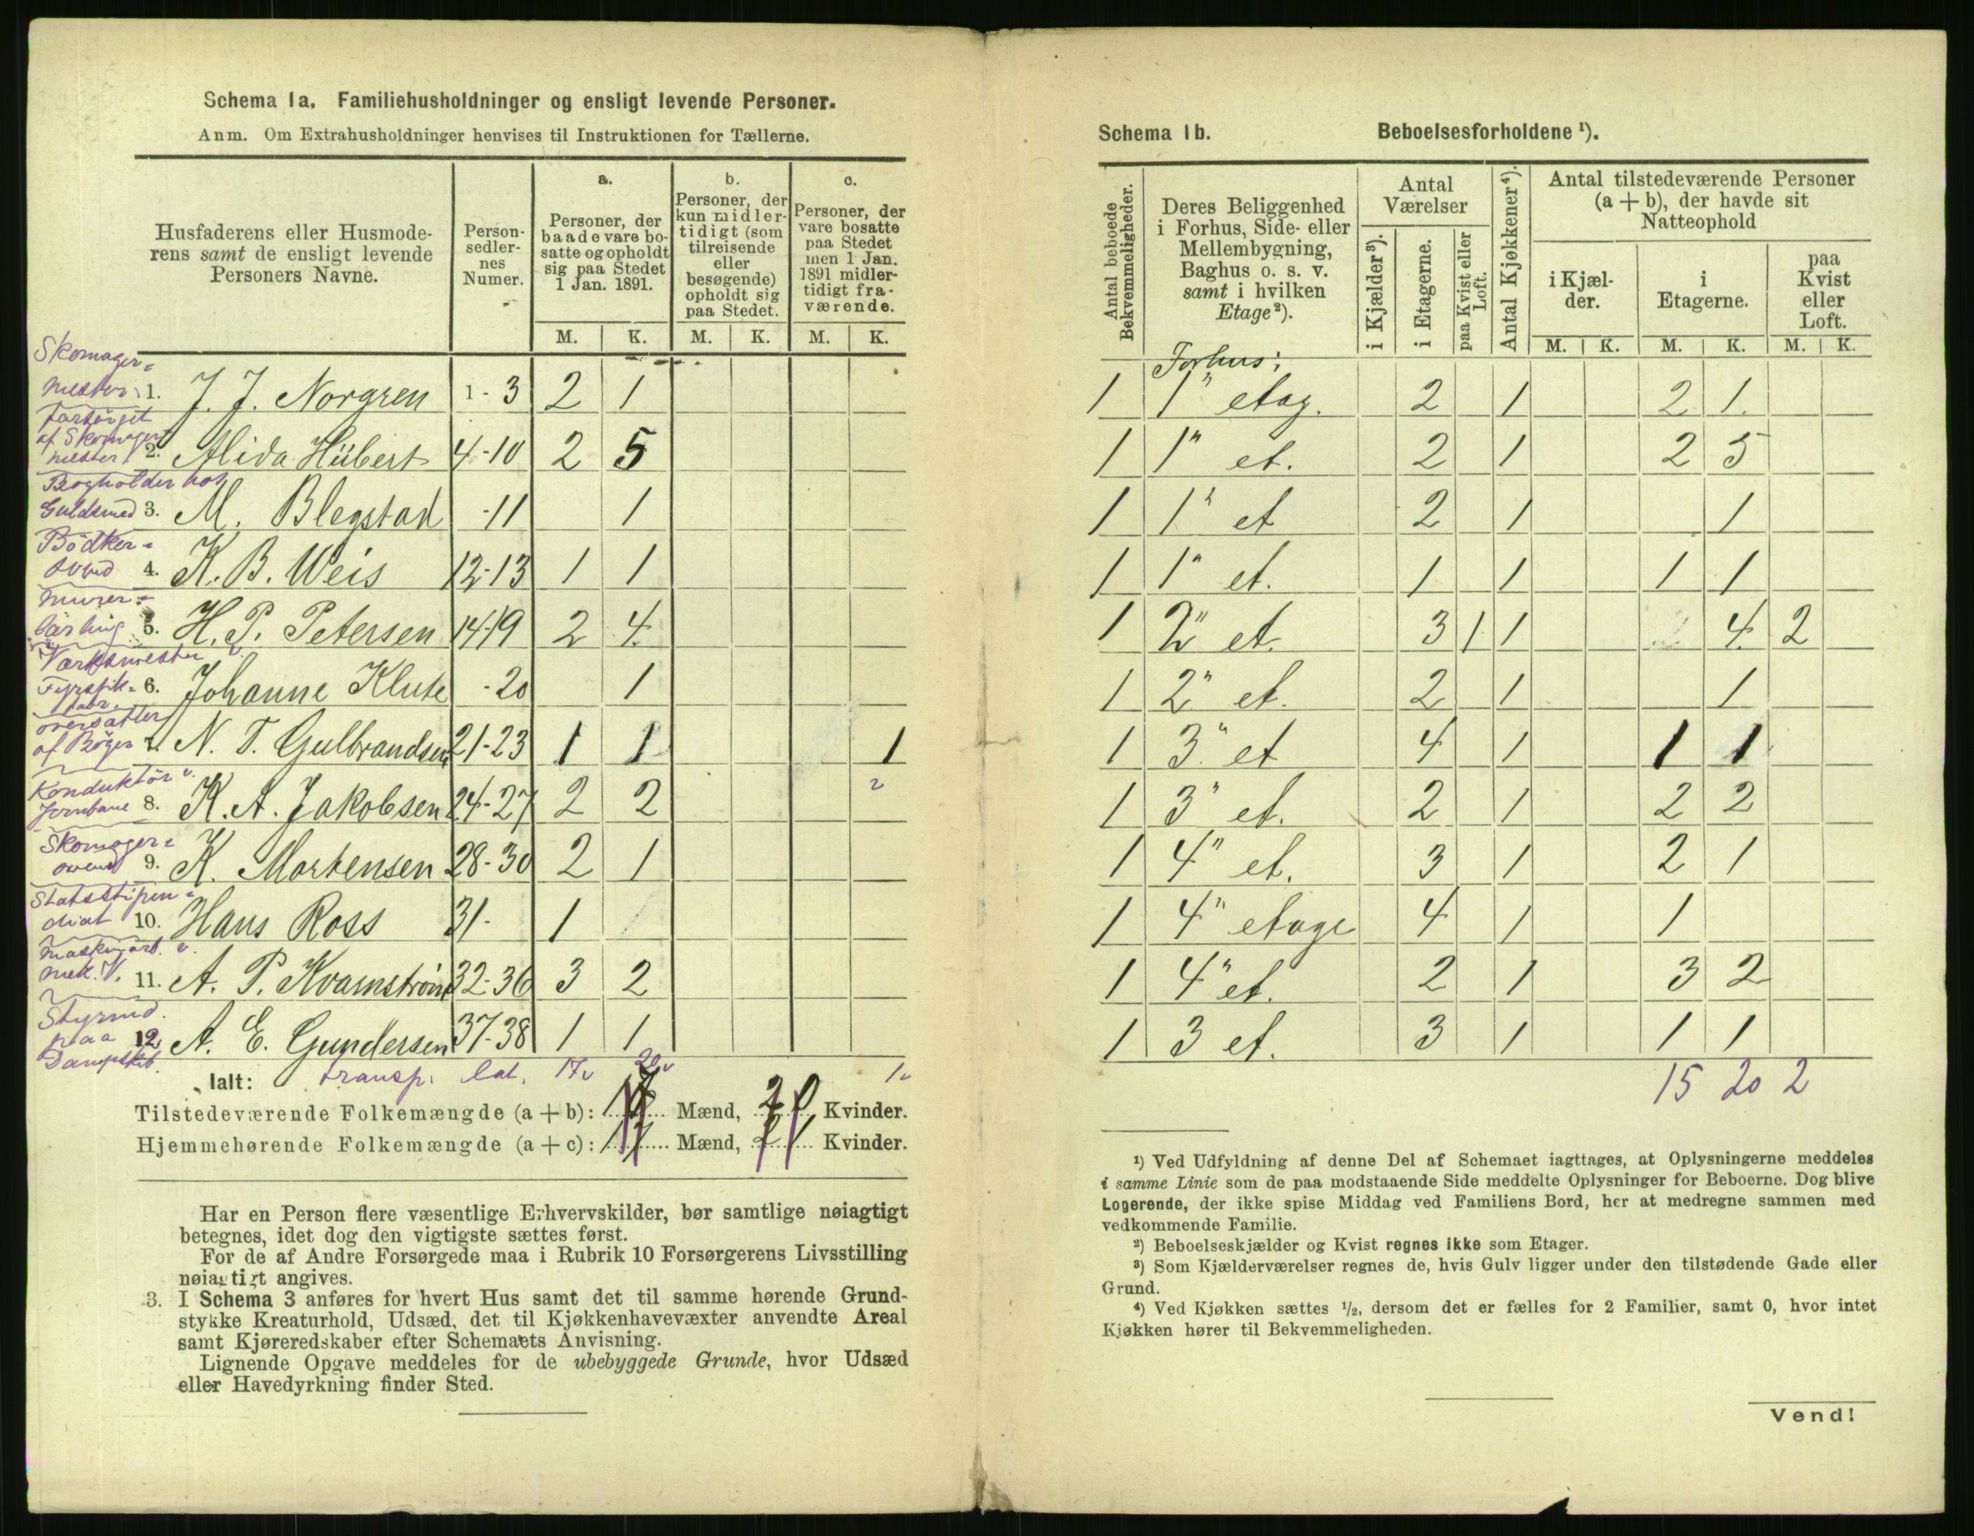 Schema 1a. Familiehusholdninger og ensligt levende Personer.
Anm. Om Extrahusholdninger henvises til Instruktionen for Tællerne.
Husfaderens eller Husmode-
rens samt de ensligt levende
Personers Navne.
Person-
sedler-
nes
Numer.
a.
Personer, der
baade vare bo-
satte og opholdt
sig paa Stedet
1 Jan. 1891.
b.
Personer, der
kun midler-
tidigt (som
tilreisende
eller
besøgende)
opholdt sig
paa Stedet.
c.
Personer, der
vare bosatte
paa Stedet
men 1 Jan.
1891 midler-
tidigt fra-
værende.
M. K. M. K. M. K.
Skomager-
mester 1. J. J. Norgren 1-3 2 1
forsörget
af Skomager
mester 2. Alida Hübert 4-10 2 5
Bogholder hos
Guldsmed 3. M. Blegstad -11 1
Bödker-
svend 4. K. B. Weis 12-13 1 1
Murer-
lärling 5. H. P. Petersen 14-19 2 4
Værksmester v.
Fyrstik-
fabr. 6. Johanne Klute -20 1
oversätter
af Bøger 7. N. T. Gulbrandsen 21-23 1 1 1
Konduktör v.
Jernbane 8. K. A. Jakobsen 24-27 2 2
Skomager-
svend 9. K. Mortensen 28-30 2 1
Statsstipen-
diat 10. Hans Ross 31- 1
Maskinarb. v.
mek. V. 11. A. P. Kvarnström 32-36 3 2
Styrmd.
paa 12. A. E. Gundersen 37-38 1 1
Dampskib.
Ialt: transp. lat. 17 20 1
Tilstedeværende Folkemængde (a + b): Mænd, 20 Kvinder.
Hjemmehørende Folkemængde (a + c): 17 Mænd, 21 Kvinder.
Har en Person flere væsentlige Erhvervskilder, bør samtlige nøiagtigt
betegnes, idet dog den vigtigste sættes først.
For de af Andre Forsørgede maa i Rubrik 10 Forsørgerens Livsstilling
nøiagtigt angives.
3. I Schema 3 anføres for hvert Hus samt det til samme hørende Grund-
stykke Kreaturhold, Udsæd, det til Kjøkkenhavevæxter anvendte Areal
samt Kjøreredskaber efter Schemaets Anvisning.
Lignende Opgave meddeles for de ubebyggede Grunde, hvor Udsæd
eller Havedyrkning finder Sted.
Schema 1b. Beboelsesforholdene ¹).
Antal beboede
Bekvemmeligheder.
Deres Beliggenhed
i Forhus, Side- eller
Mellembygning,
Baghus o. s. v.
samt i hvilken
Etage²).
Antal
Værelser
i Kjælder³).
i Etagerne.
paa Kvist eller
Loft.
Antal Kjøkkener⁴).
Antal tilstedeværende Personer
(a + b), der havde sit
Natteophold
i Kjæl-
der.
i
Etagerne.
paa
Kvist
eller
Loft.
M. K. M. K. M. K.
Forhus:
1 1" etag. 2 1 2 1
1 1" et. 2 1 2 5
1 1" et 2 1 1
1 1" et. 1 1 1 1
1 2" et. 3 1 1 4 2
1 2" et. 2 1 1
1 3" et 4 1 1 1
1 3" et. 2 1 2 2
1 4" et. 3 1 2 1
1 4" etage 4 1 1
1 4" et. 2 1 3 2
1 3 et. 3 1 1 1
15 20 2
¹) Ved Udfyldning af denne Del af Schemaet iagttages, at Oplysningerne meddeles
i samme Linie som de paa modstaaende Side meddelte Oplysninger for Beboerne. Dog blive
Logerende, der ikke spise Middag ved Familiens Bord, her at medregne sammen med
vedkommende Familie.
²) Beboelseskjælder og Kvist regnes ikke som Etager.
³) Som Kjælderværelser regnes de, hvis Gulv ligger under den tilstødende Gade eller
Grund.
⁴) Ved Kjøkken sættes ½, dersom det er fælles for 2 Familier, samt 0, hvor intet
Kjøkken hører til Bekvemmeligheden.
Vend!